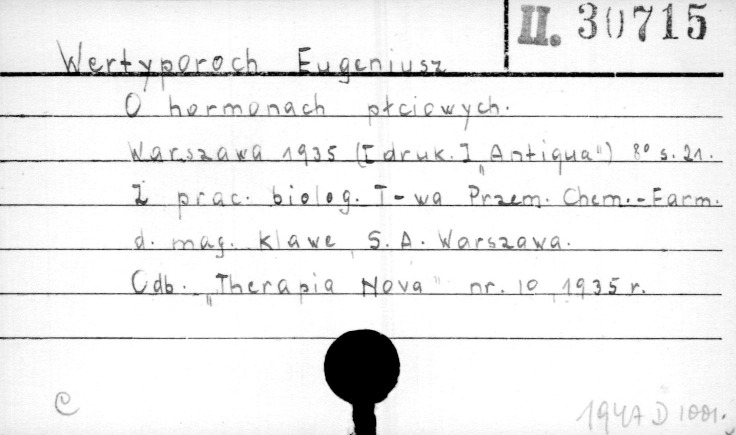 II. 30715
Wertyporoch Eugeniusz
O hormonach płciowych.
Warszawa 1935 ([druk.] „Antiqua") 8° s. 21.
Z prac. biolog. T-wa Przem. Chem.-Farm.
d. mag. Klawe, S. A. Warszawa.
Odb. „Therapia Nova" nr. 10, 1935 r.
C
1947 D 1001.